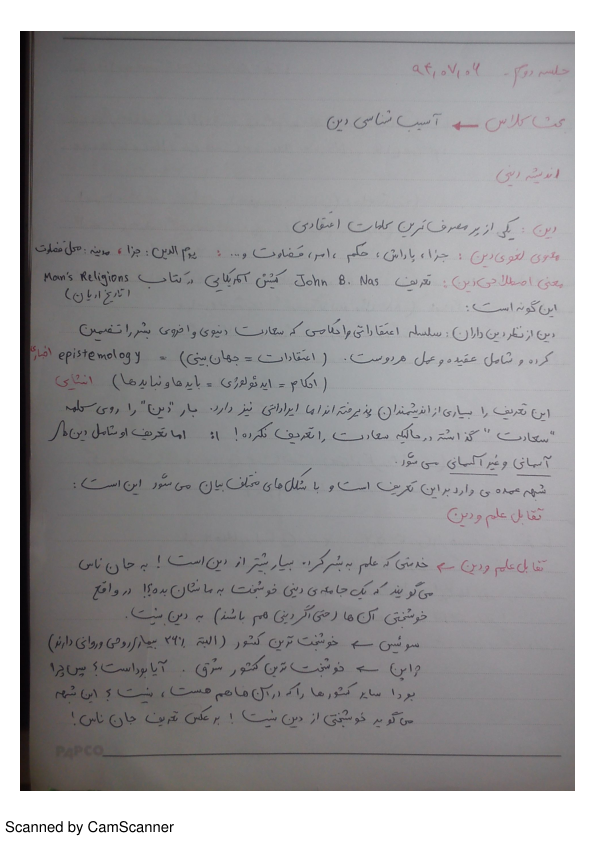 جلسه دوم - ۹۴,۰۷,۰۶
بحث کلاس ← آسیب شناسی دین
اندیشه دینی
دین : یکی از پر مصرف ترین کلمات اعتقادی
معنوی لغوی دین : جزا، پاداش، حکم، امر، قضاوت و... : یوم الدین : جزا ، مدینه : محل قضاوت
معنی اصطلاحی دین : تعریف John B. Nas کشیش آمریکایی در کتاب Man's Religions
(تاریخ ادیان)
این گونه است :
دین از نظر دین داران : سلسله اعتقاداتی و احکامی که سعادت دنیوی و اخروی بشر را تضمین
کرده و شامل عقیده و عمل هر دوست. (اعتقادات = جهان بینی) = epistemology اخباری
(احکام = ایدئولوژی = بایدها و نبایدها) انشایی
این تعریف را بسیاری از اندیشمندان پذیرفته اند اما ایراداتی نیز دارد. بار "دین" را روی کلمه
"سعادت" گذاشته در حالیکه سعادت را تعریف نکرده! اما تعریف او شامل دین های
آسمانی و غیر آسمانی می شود.
شبهه عمده ی وارد بر این تعریف است و با شکل های مختلف بیان می شود این است :
تقابل علم و دین
تقابل علم و دین ← خدمتی که علم به بشر کرده بسیار بیشتر از دین است! به جان ناس
می گویند که یک جامعه ی دینی خوشبخت به ما نشان بده؟! در واقع
خوشبختی آن ها (حتی اگر دینی هم باشند) به دین نیست.
سوئیس ← خوشبخت ترین کشور (البته ۳۶٪ بیمار روحی و روانی دارند)
ژاپن ← خوشبخت ترین کشور شرق. آیا بوداست؟ پس چرا
بودا سایر کشورها را که در آن ها هم هست، نیست؟ این شبهه
می گوید خوشبختی از دین نیست! بر عکس تعریف جان ناس!
PAPCO
Scanned by CamScanner